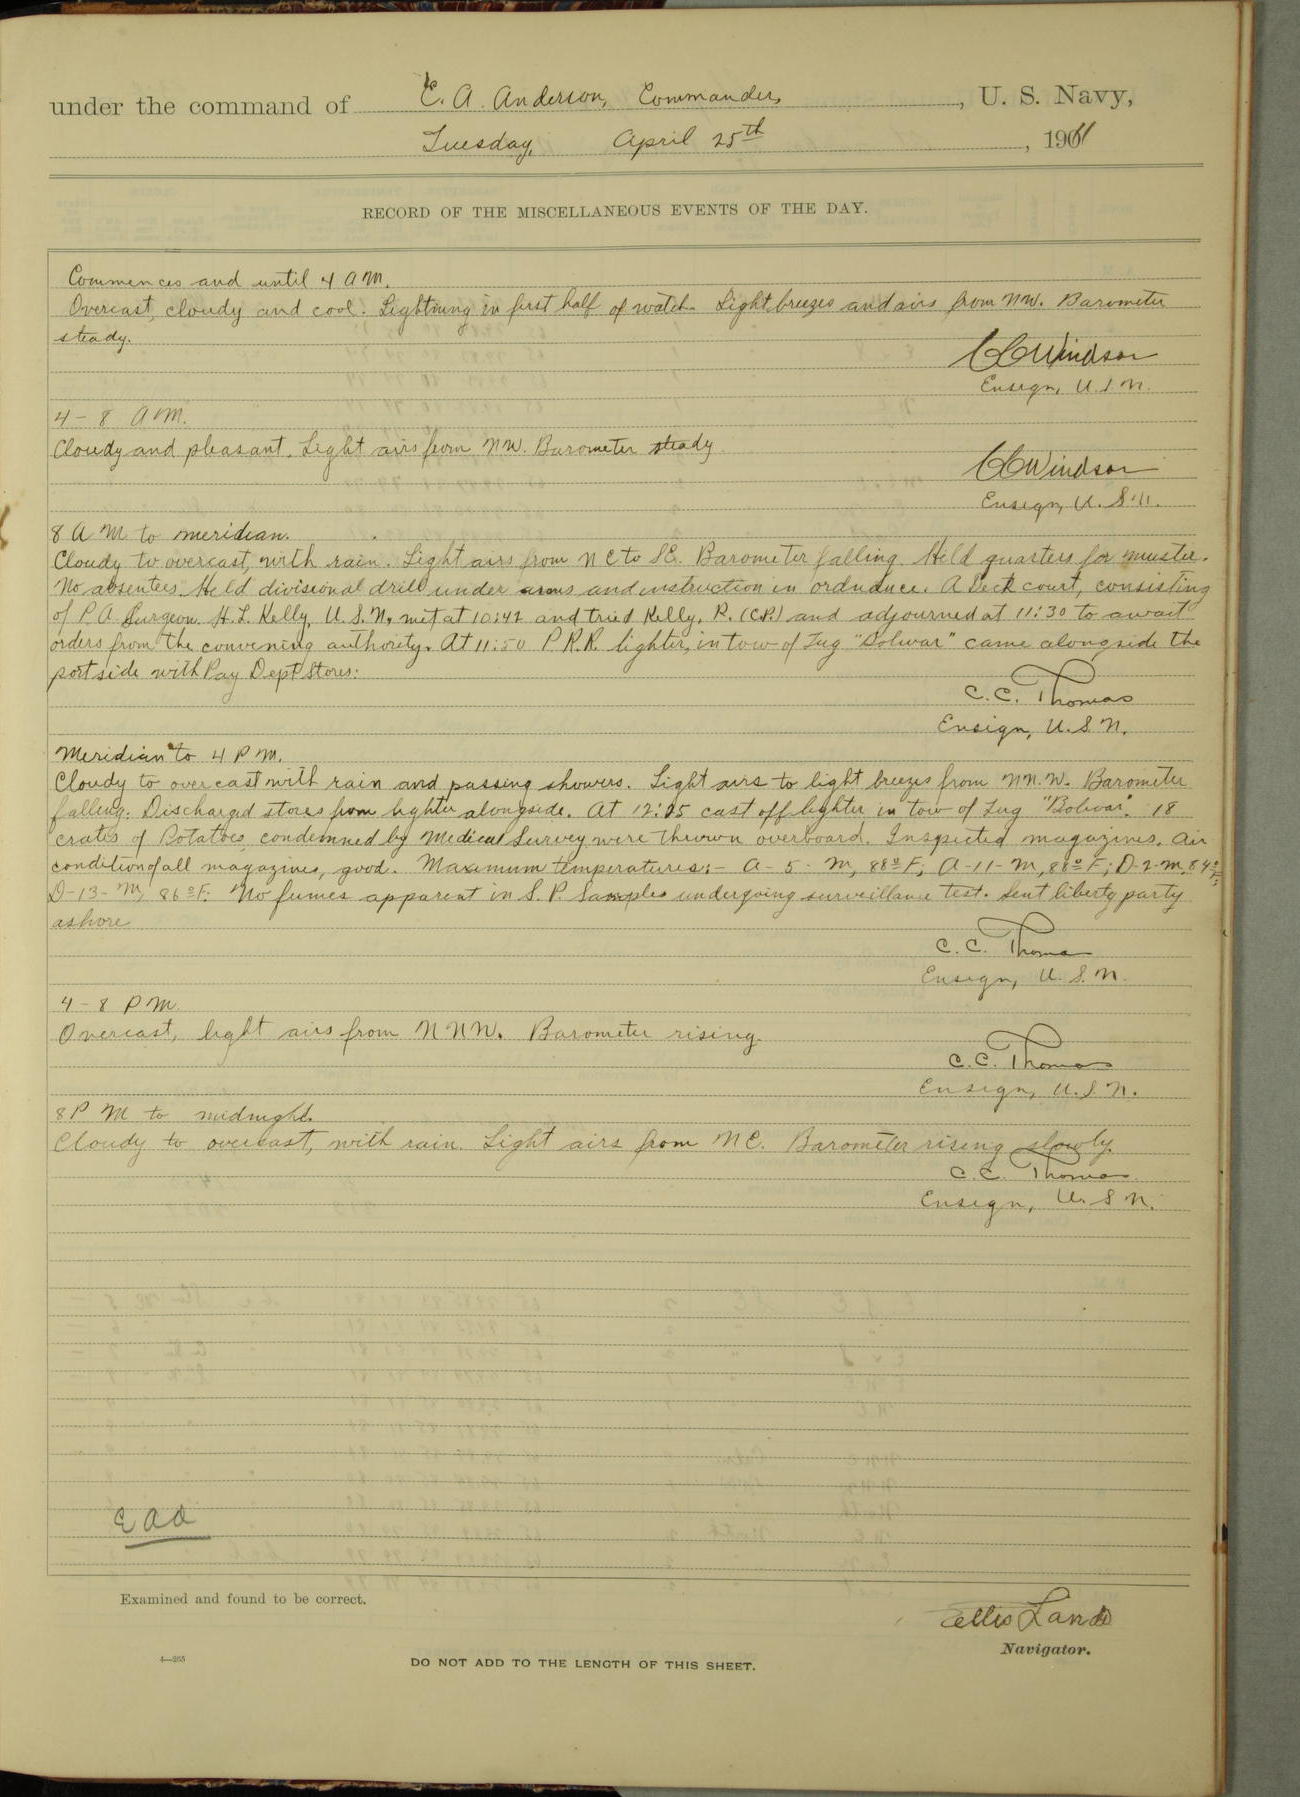 under the command of E. A. Anderson, Commander, , U. S. Navy,
Tuesday, April 25th , 1911
RECORD OF THE MISCELLANEOUS EVENTS OF THE DAY.
Commences and until 4 A M.
Overcast, cloudy and cool. Lightning in first half of watch. Light breezes and airs from NW. Barometer
steady.
CCWindsor
Ensign, U.S.N.
4 - 8 A M.
Cloudy and pleasant. Light airs from NW. Barometer steady
CCWindsor
Ensign, U.S.N.
8 A M to meridian.
Cloudy to overcast, with rain. Light airs from NE to SE. Barometer falling. Held quarters for muster.
No absentees. Held divisional drill under arms and instruction in ordnance. A Deck court, consisting
of P. A. Surgeon H. L. Kelly, U. S. N., met at 10:42 and tried Kelly, R. (C.P.) and adjourned at 11:30 to await
orders from the convening authority. At 11:50 P.R.R. lighter, in tow of Tug "Bolivar" came alongside the
port side with Pay Dept Stores.
C. C. Thomas
Ensign, U.S.N.
Meridian to 4 P M.
Cloudy to overcast with rain and passing showers. Light airs to light breezes from NN.W. Barometer
falling. Discharged stores from lighter alongside. At 12:25 cast off lighter in tow of Tug "Bolivar". 18
crates of Potatoes, condemned by Medical Survey were thrown overboard. Inspected magazines. Air
condition of all magazines, good. Maximum temperatures:- A-5-M, 88° F; A-11-M, 88° F; D-2-M, 84° F;
D-13-M, 86° F. No fumes apparent in S. P. Samples undergoing surveillance test. Sent liberty party
ashore
C. C. Thomas
Ensign, U. S. N.
4 - 8 P M.
Overcast, light airs from NNW. Barometer rising.
C. C. Thomas
Ensign, U.S.N.
8 P M to midnight.
Cloudy to overcast, with rain. Light airs from NE. Barometer rising slowly.
C. C. Thomas
Ensign, U. S N.
E A A
Examined and found to be correct.
Ellis Lando
Navigator.
4—265
DO NOT ADD TO THE LENGTH OF THIS SHEET.